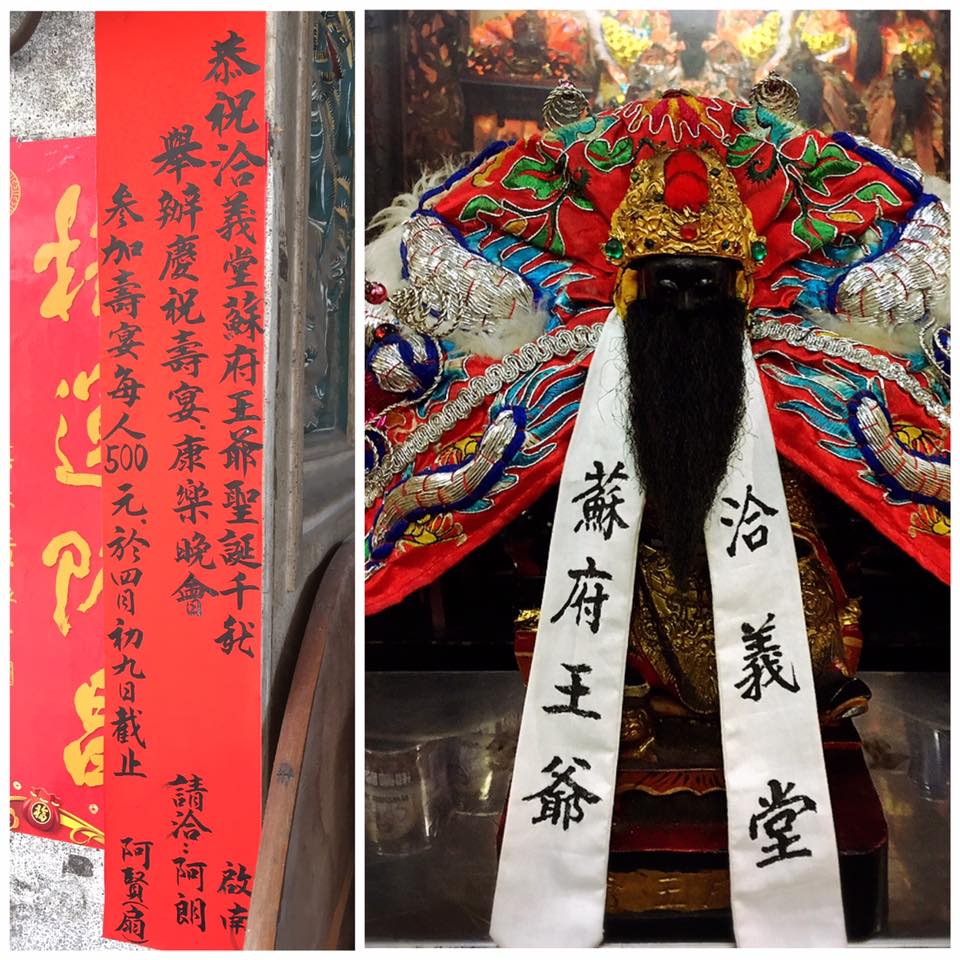 恭祝洽義堂蘇府王爺聖誕千秋
舉辦慶祝壽宴、康樂晚會
參加壽宴每人500元、於四月初九日截止
啟南
請洽：阿朗
阿賢(扇)
洽義堂
蘇府王爺